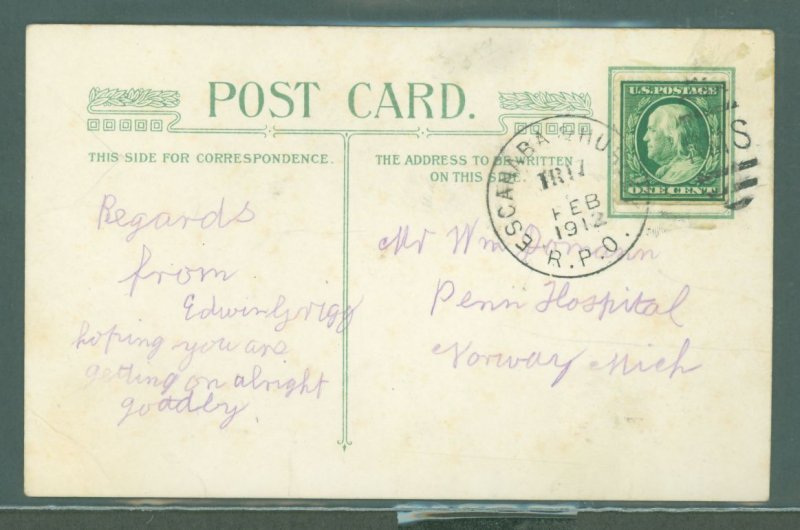 POST CARD.
THIS SIDE FOR CORRESPONDENCE.
THE ADDRESS TO BE WRITTEN
ON THIS SIDE.
U.S. POSTAGE
ONE CENT
ESCANABA
TR 17
FEB
1912
R.P.O.
S
Regards
from
Edwin Grigg
hoping you are
getting on alright
goodby.
Mr Wm Domann
Penn Hospital
Norway Mich